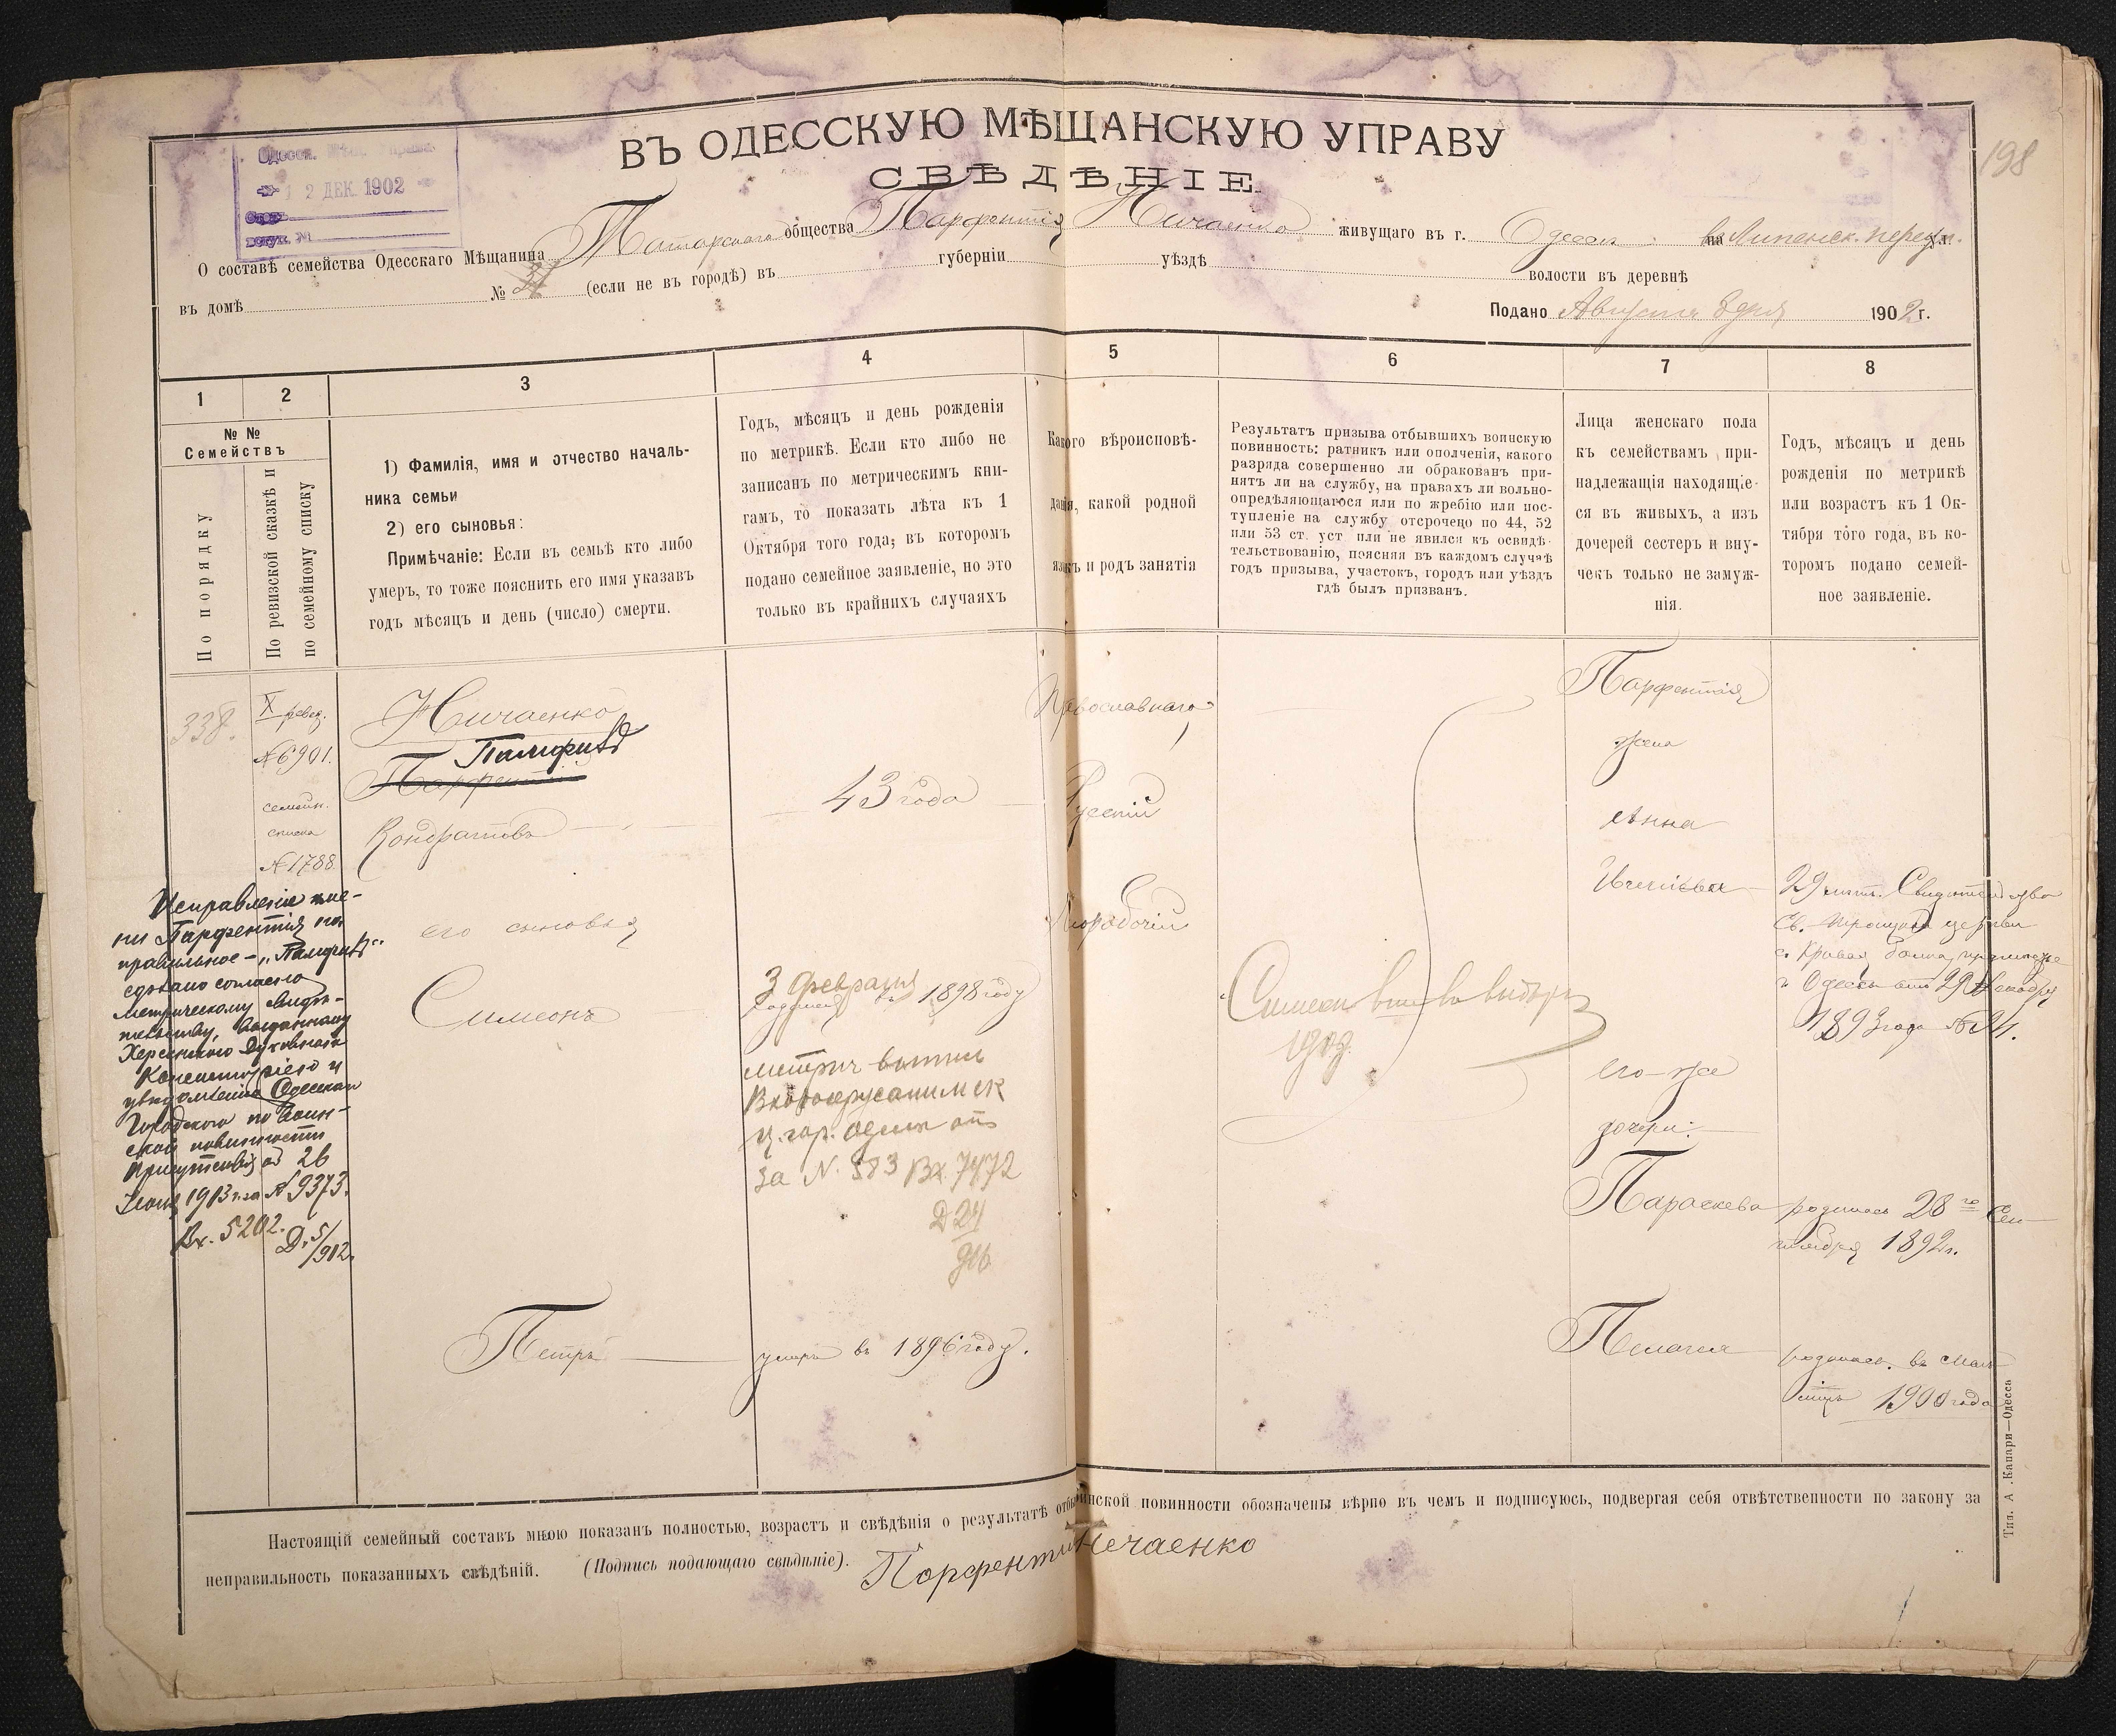 198
ВЪ ОДЕССКУЮ МѢЩАНСКУЮ УПРАВУ
СВѢДѢНІЕ.
Одесск. Мѣщ. Управа
12 ДЕК. 1902
Столъ
вступ. №
О составѣ семейства Одесскаго Мѣщанина Татарскаго общества Парфентія Ничаенко живущаго въ г. Одессѣ на
въ домѣ № 31 (если не въ городѣ) въ губерніи уѣздѣ волости въ деревнѣ
Подано Августа 8 дня 1902 г.
1 2 3 4 5 6 7 8
№ №
Семействъ
По порядку
По ревизской сказкѣ и
по семейному списку
1) Фамилія, имя и отчество началь-
ника семьи
2) его сыновья:
Примѣчаніе: Если въ семьѣ кто либо
умеръ, то тоже пояснить его имя указавъ
годъ мѣсяцъ и день (число) смерти.
Годъ, мѣсяцъ и день рожденія
по метрикѣ. Если кто либо не
записанъ по метрическимъ кни-
гамъ, то показать лѣта къ 1
Октября того года, въ которомъ
подано семейное заявленіе, но это
только въ крайнихъ случаяхъ
Какого вѣроисповѣ-
данія, какой родной
языкъ и родъ занятія
Результатъ призыва отбывшихъ воинскую
повинность: ратникъ или ополченія, какого
разряда совершенно ли обракованъ при-
нятъ ли на службу, на правахъ ли вольно-
опредѣляющагося или по жребію или пос-
тупленіе на службу отсрочено по 44, 52
или 53 ст. уст или не явился къ освидѣ-
тельствованію, поясняя въ каждомъ случаѣ
годъ призыва, участокъ, городъ или уѣздъ
гдѣ былъ призванъ.
Лица женскаго пола
къ семействамъ при-
надлежащія находящіе-
ся въ живыхъ, а изъ
дочерей сестеръ и вну-
чекъ только не замуж-
нія.
Годъ, мѣсяцъ и день
рожденія по метрикѣ
или возрастъ къ 1 Ок-
тября того года, въ ко-
торомъ подано семей-
ное заявленіе.
338.
X ревиз.
№ 6901.
семейн.
списка
№ 1788
Ничаенко
Памфилъ
Парфентій
Кондратовъ
43 года
Православнаго
Русскій
Чорабочій
Парфентія
жена
Анна
29 лѣтъ. Свидѣтельство
Св. Троицкой церкви
с. Кривая Балка
г. Одессы отъ 29 Декабря
1893 года № 21.
Исправленіе име-
ни Парфентія на
правильное - „Памфилъ“
сдѣлано согласно
метрическому свидѣ-
тельству, выданному
Херсонскою Духовною
Консисторіею и
увѣдомленію Одесскаго
Городского по воин-
ской повинности
Присутствія отъ 26
Іюня 1913 г. за № 9373.
Вх. 5202. Д. 5/912.
его сыновья
Симеонъ
3 Февраля
родился въ 1898 году
метрич выпись
ц. гор. Одессы отъ
за N. 583 Вх. 7472
Д 24
916
Симеон
его-же
дочери:
Параскева родилась 28го Сен-
тября 1892 г.
Петръ умеръ въ 1896 году.
Пелагея родилась въ
1900 года
Настоящій семейный составъ мною показанъ полностью, возрастъ и свѣдѣнія о результатѣ отбыт воинской повинности обозначены вѣрно въ чемъ и подписуюсь, подвергая себя отвѣтственности по закону за
неправильность показанныхъ свѣдѣній. (Подпись подающаго свѣдѣніе). Порфентий Нечаенко
Тип. А. Капари—Одесса